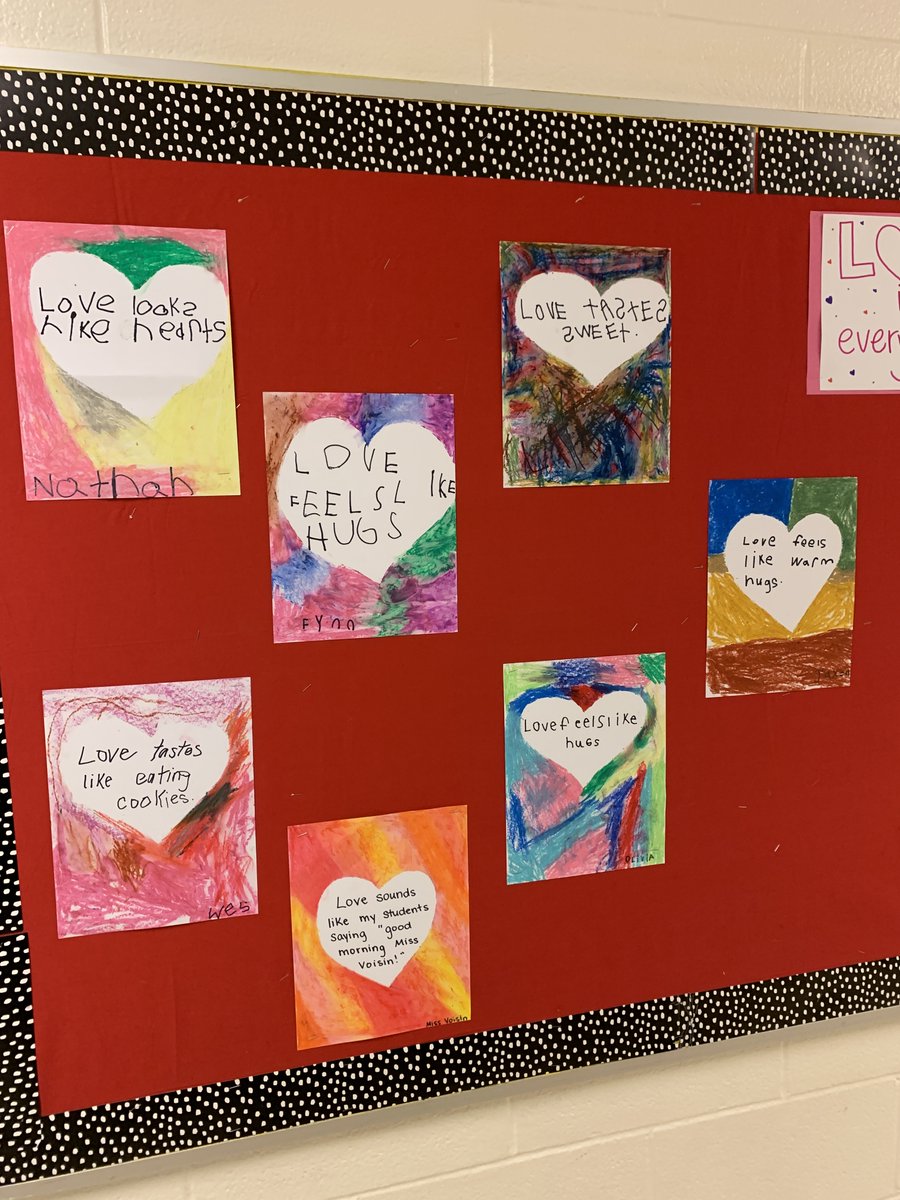 Love looks
like hearts
Nathan
LOVE
FEELSL IKE
HUGS
Fynn
LOVE tASTES
SWEET.
LO
every
Love feels
like warm
hugs.
Love tastes
like eating
cookies.
Wes
Lovefeelslike
hugs
Olivia
Love sounds
like my students
saying "good
morning Miss
Voisin!"
Miss Voisin